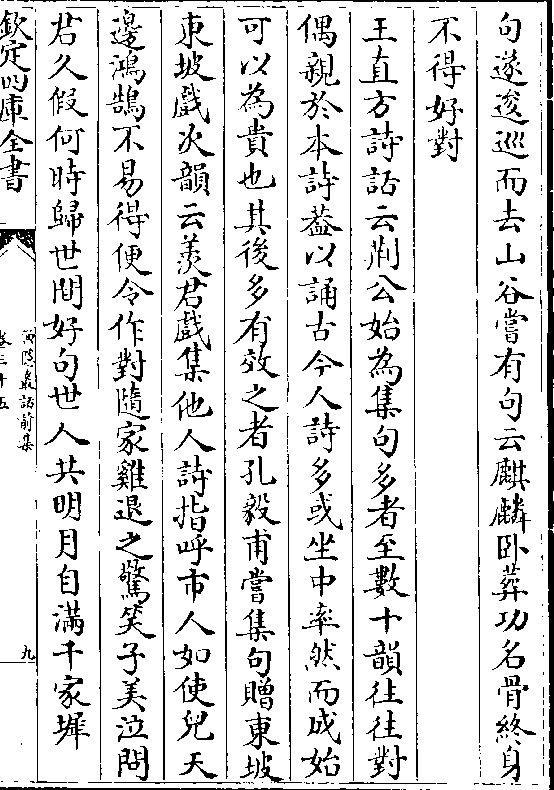 句遂逡巡而去山谷嘗有句云麒麟卧葬功名骨終身
不得好對
王直方詩話云荆公始為集句多者至數十韻往往對
偶親於本詩葢以誦古今人詩多或坐中率然而成始
可以為貴也其後多有效之者孔毅甫嘗集句贈東坡
東坡戲次韻云羨君戲集他人詩指呼市人如使兒天
邊鴻鵠不易得便令作對隨家雞退之驚笑子美泣問
君久假何時歸世間好句世人共明月自滿千家墀
欽定四庫全書
漁隱叢話前集
卷三十五
九